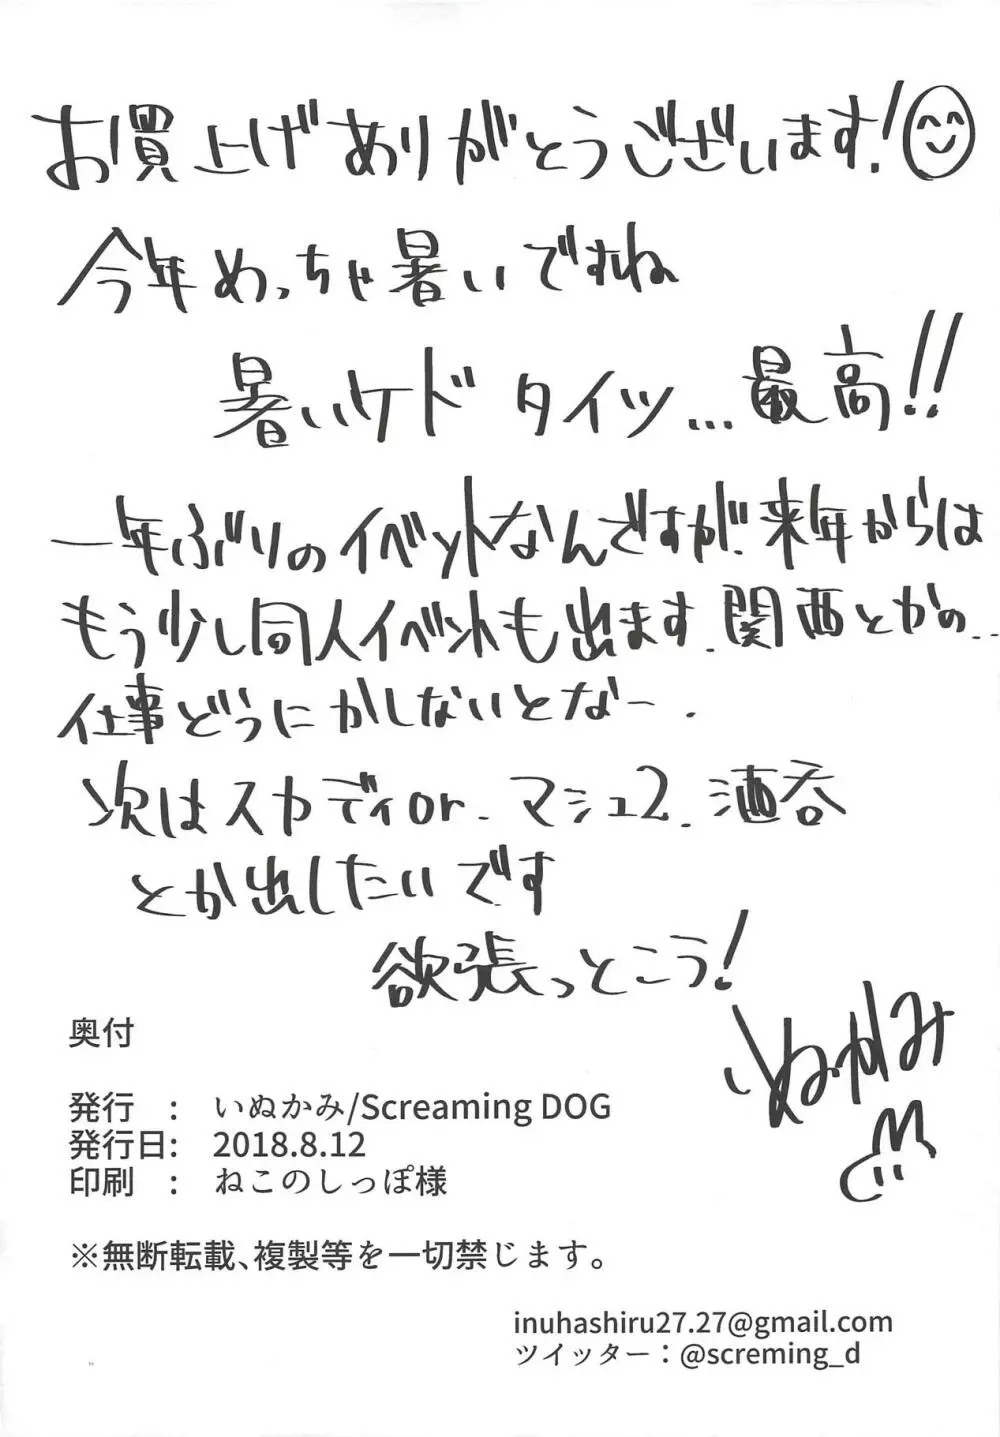 お買上げありがとうございます!
今年めっちゃ暑いですね
暑いケド タイツ...最高!!
一年ぶりのイベントなんですが.来年からは
もう少し同人イベントも出ます.関西とかの..
仕事どうにかしないとなー.
次はスカディor.マシュ2.酒呑
とか出したいです
欲張っとこう!
いぬかみ
奥付
発行 : いぬかみ/Screaming DOG
発行日: 2018.8.12
印刷 : ねこのしっぽ様
※無断転載、複製等を一切禁じます。
inuhashiru27.27@gmail.com
ツイッター:@screming_d